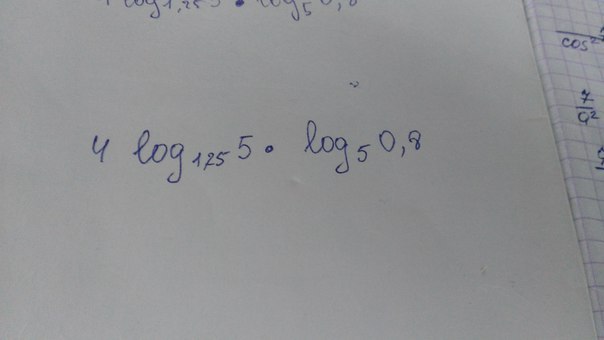 4 log₁,₂₅5 · log₅0,8
4 log₁,₂₅5 · log₅0,8
cos²
7